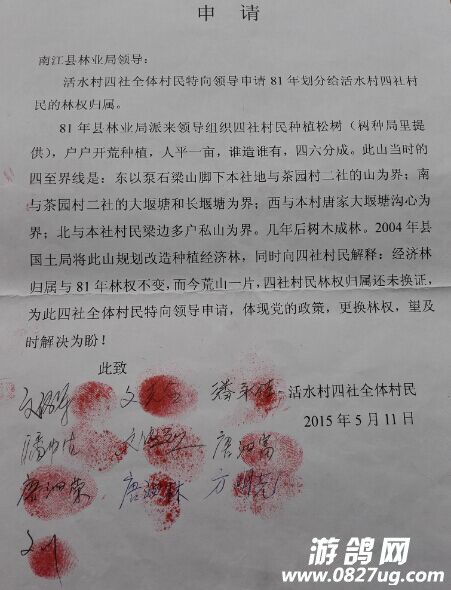 申 请
南江县林业局领导：
活水村四社全体村民特向领导申请 81 年划分给活水村四社村
民的林权归属。
81 年县林业局派来领导组织四社村民种植松树（树种局里提
供），户户开荒种植，人平一亩，谁造谁有，四六分成。此山当时的
四至界线是：东以泵石梁山脚下本社地与茶园村二社的山为界；南
与茶园村二社的大堰塘和长堰塘为界；西与本村唐家大堰塘沟心为
界；北与本社村民梁边多户私山为界。几年后树木成林。2004 年县
国土局将此山规划改造种植经济林，同时向四社村民解释：经济林
归属与 81 年林权不变，而今荒山一片，四社村民林权归属还未换证，
为此四社全体村民特向领导申请，体现党的政策，更换林权，望及
时解决为盼！
此致
活水村四社全体村民
2015 年 5 月 11 日
游鸽网
www.0827ug.com